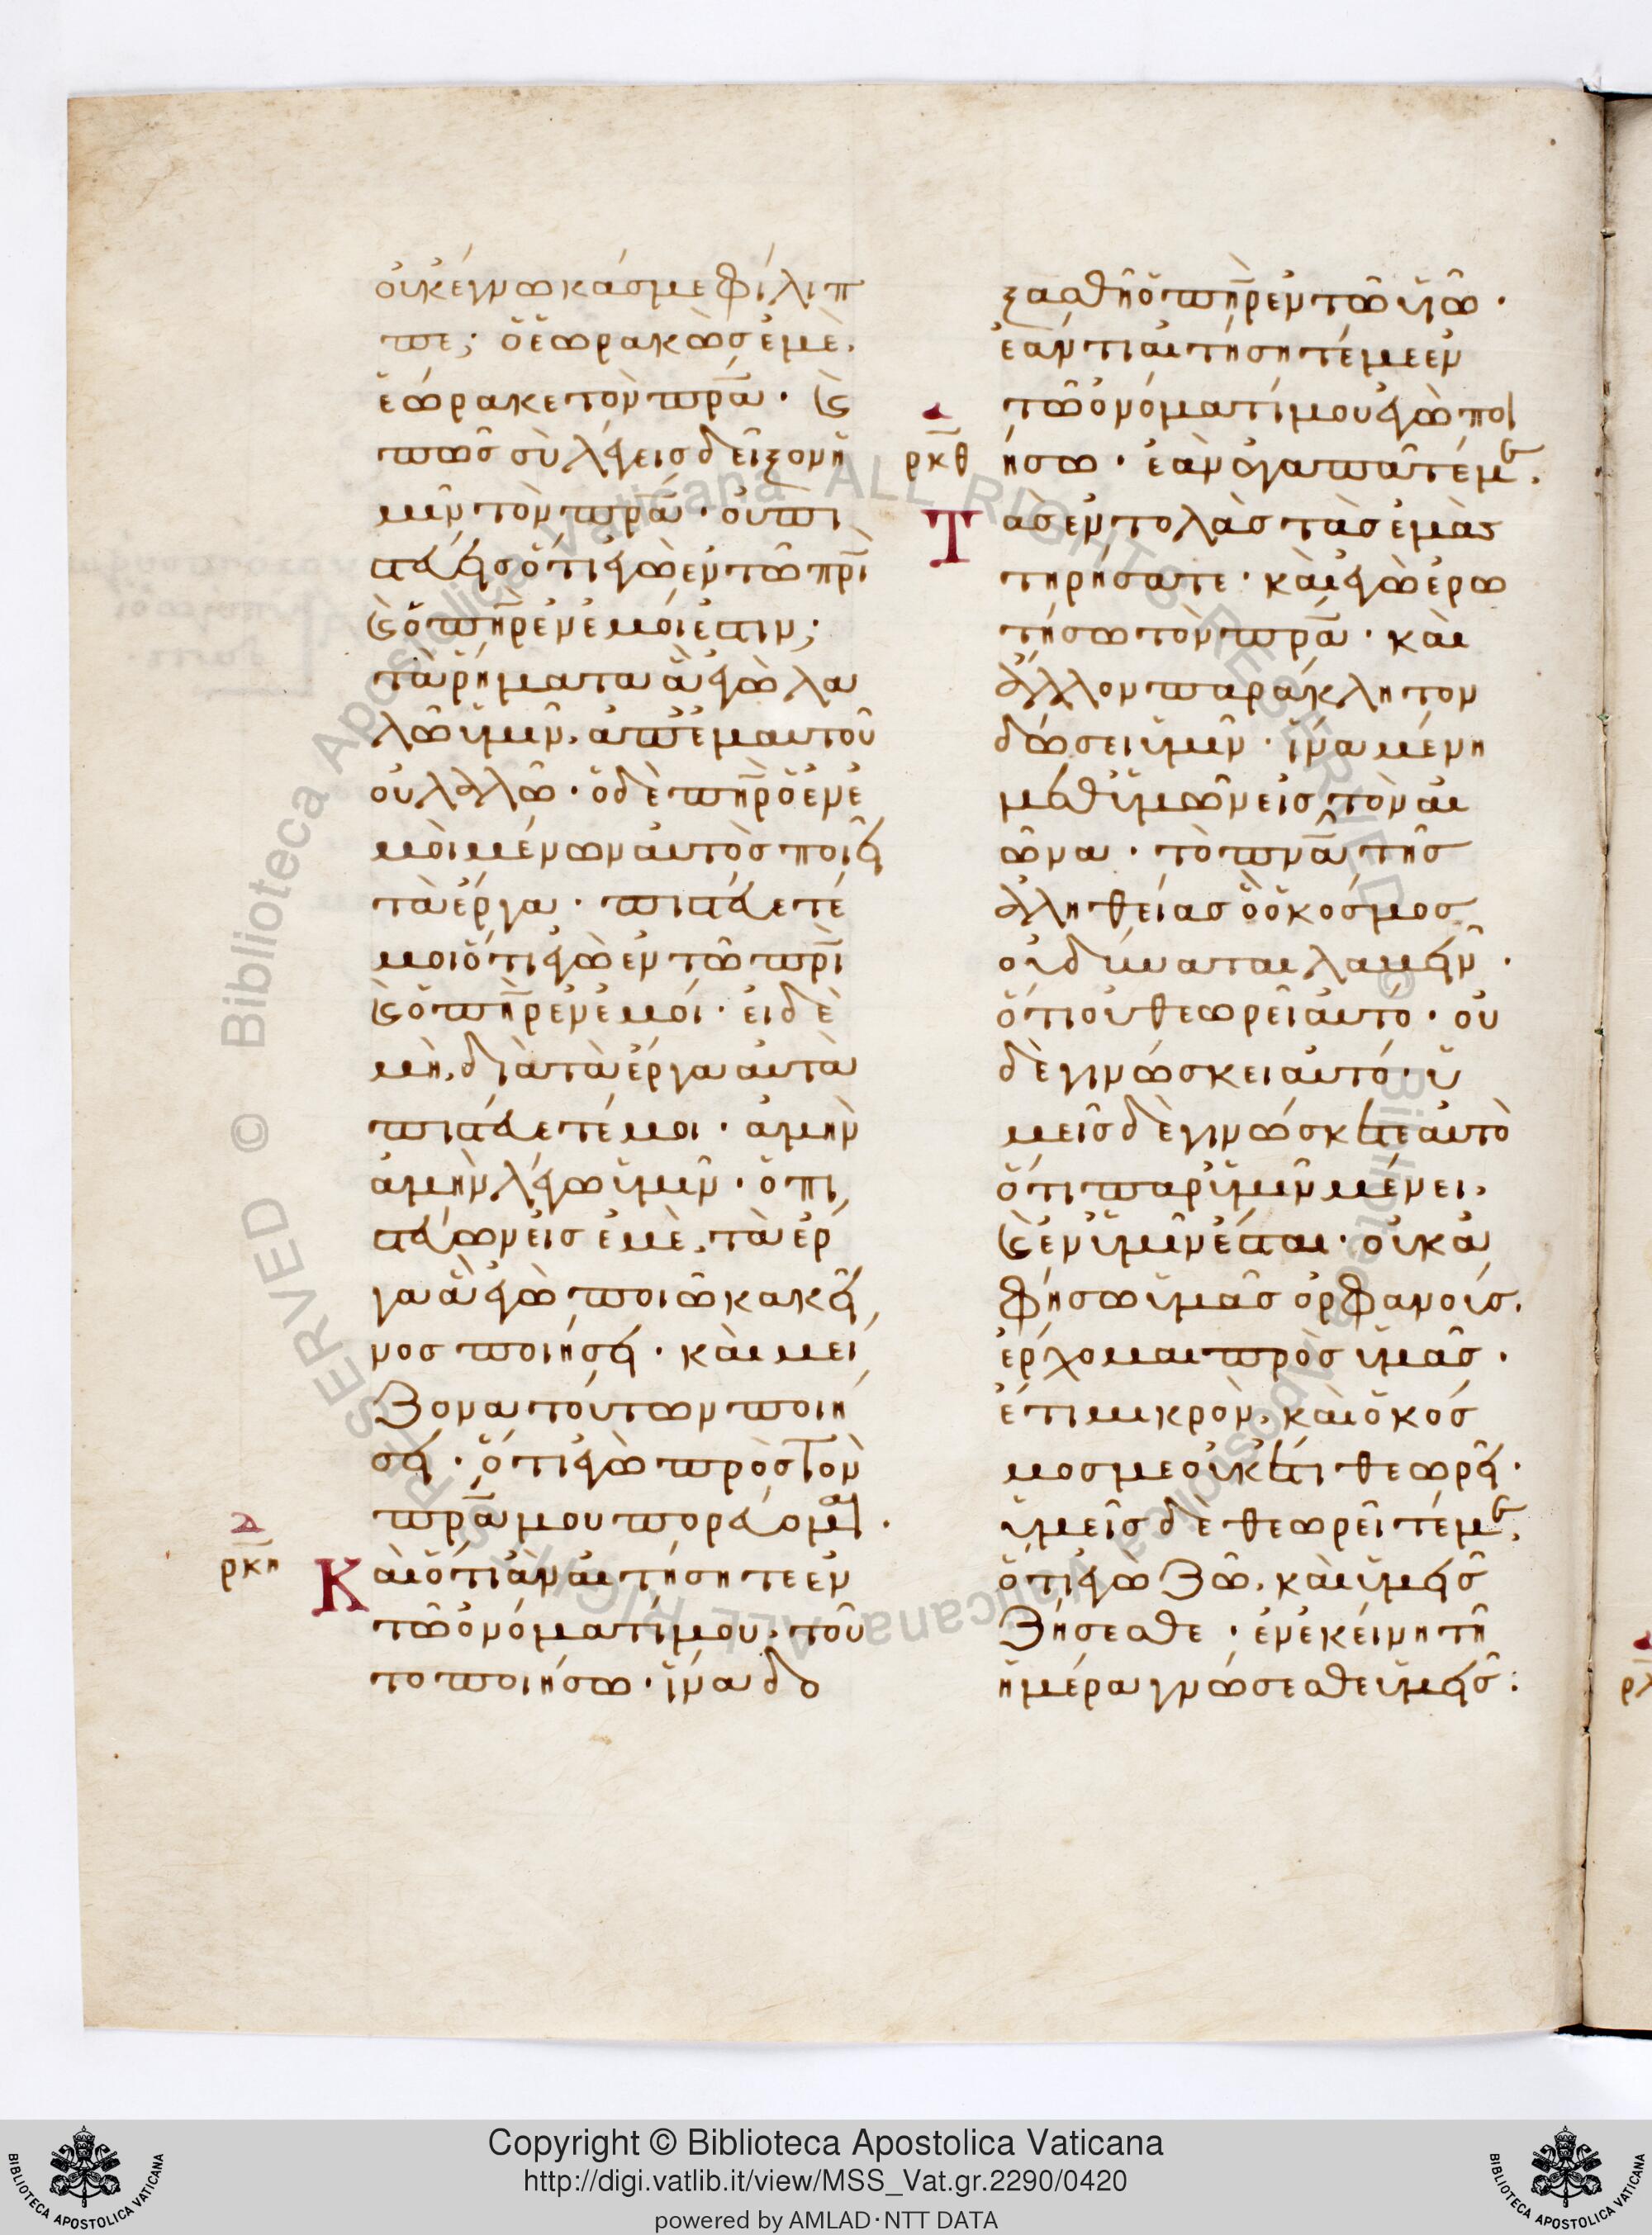 οὐκ ἔγνωκάς με φίλιπ
πε; ὁ ἑωρακὼς ἐμὲ,
ἑώρακε τὸν πρ̅α̅· (καὶ)
πῶς σὺ λέγεις δεῖξον ἡ
μῖν τὸν πρ̅α̅· οὐ πι
στεύεις ὅτι ἐγὼ ἐν τῶ πρ̅ι̅
(καὶ) ὁ πη̅ρ̅ ἐν ἐμοί ἐστιν;
τὰ ῥήματα ἃ ἐγὼ λα
λῶ ὑμῖν, ἀπ' ἐμαυτοῦ
οὐ λαλῶ· ὁ δὲ πη̅ρ̅ ὁ ἐν ἐ
μοὶ μένων αὐτὸς ποιεῖ
τὰ ἔργα· πιστεύετέ
μοι ὅτι ἐγὼ ἐν τῶ πρ̅ι̅
(καὶ) ὁ πη̅ρ̅ ἐν ἐμοί· εἰ δὲ
μὴ, διὰ τὰ ἔργα αὐτὰ
πιστεύετέ μοι· ἀμὴν
ἀμὴν λέγω ὑμῖν· ὁ πι
στεύων εἰς ἐμὲ, τὰ ἔρ
γα ἃ ἐγὼ ποιῶ κακεῖ
νος ποιήσει· καὶ μεί
ζονα τούτων ποιή
σει· ὅτι ἐγὼ πρὸς τὸν
πρ̅α̅ μου πορεύομαι·
ρκη Καὶ ὅτι ἂν αἰτήσητε ἐν
τῶ ὀνόματί μου, τοῦ
το ποιήσω· ἵνα δο
ξασθῆ ὁ πη̅ρ̅ ἐν τῶ υἱῶ·
ἐάν τι αἰτήσητέ με ἐν
τῶ ὀνόματί μου ἐγὼ ποι
ρκθ ήσω· ἐὰν ἀγαπᾶτέ με,
Τὰς ἐντολὰς τὰς ἐμὰς
τηρήσατε· καὶ ἐγὼ ἐρω
τήσω τὸν πρ̅α̅· καὶ
ἄλλον παράκλητον
δώσει ὑμῖν· ἵνα μένη
μεθ' ὑμῶν εἰς τὸν αἰ
ῶνα· τὸ πν̅α̅ τῆς
ἀληθείας ὃ ὁ κόσμος
οὐ δύναται λαβεῖν·
ὅτι οὐ θεωρεῖ αὐτό· οὐ
δὲ γινώσκει αὐτό· ὑ
μεῖς δὲ γινώσκετε αὐτὸ
ὅτι παρ' ὑμῖν μένει,
(καὶ) ἐν ὑμῖν ἔσται· οὐκ ἀ
φήσω ὑμᾶς ὀρφανούς.
ἔρχομαι πρὸς ὑμᾶς·
ἔτι μικρὸν, καὶ ὁ κόσ
μος με οὐκέτι θεωρεῖ·
ὑμεῖς δὲ θεωρεῖτέ με,
ὅτι ἐγὼ ζῶ, καὶ ὑμεῖς
ζήσεσθε· ἐν ἐκείνη τῆ
ἡμέρα γνώσεσθε ὑμεῖς:
Copyright © Biblioteca Apostolica Vaticana
http://digi.vatlib.it/view/MSS_Vat.gr.2290/0420
powered by AMLAD·NTT DATA